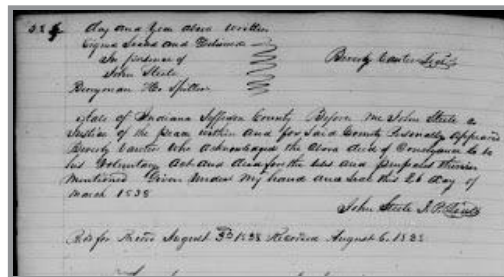 524 day and year above written
Signed Sealed and Delivered
In presence of
John Steele
Berryman H Spillen
Beverly Vawter Seal
State of Indiana Jefferson County Before me John Steele a
Justice of the peace within and for Said County Personally appeared
Beverly Vawter Who acknowledged the above deed of Conveyance to be
his Voluntary Act and deed for the Uses and purposes therein
Mentioned Given Under My hand and Seal this 26 day of
March 1838
John Steele J. P. Seal
August 3d 1838 Recorded August 6. 1838